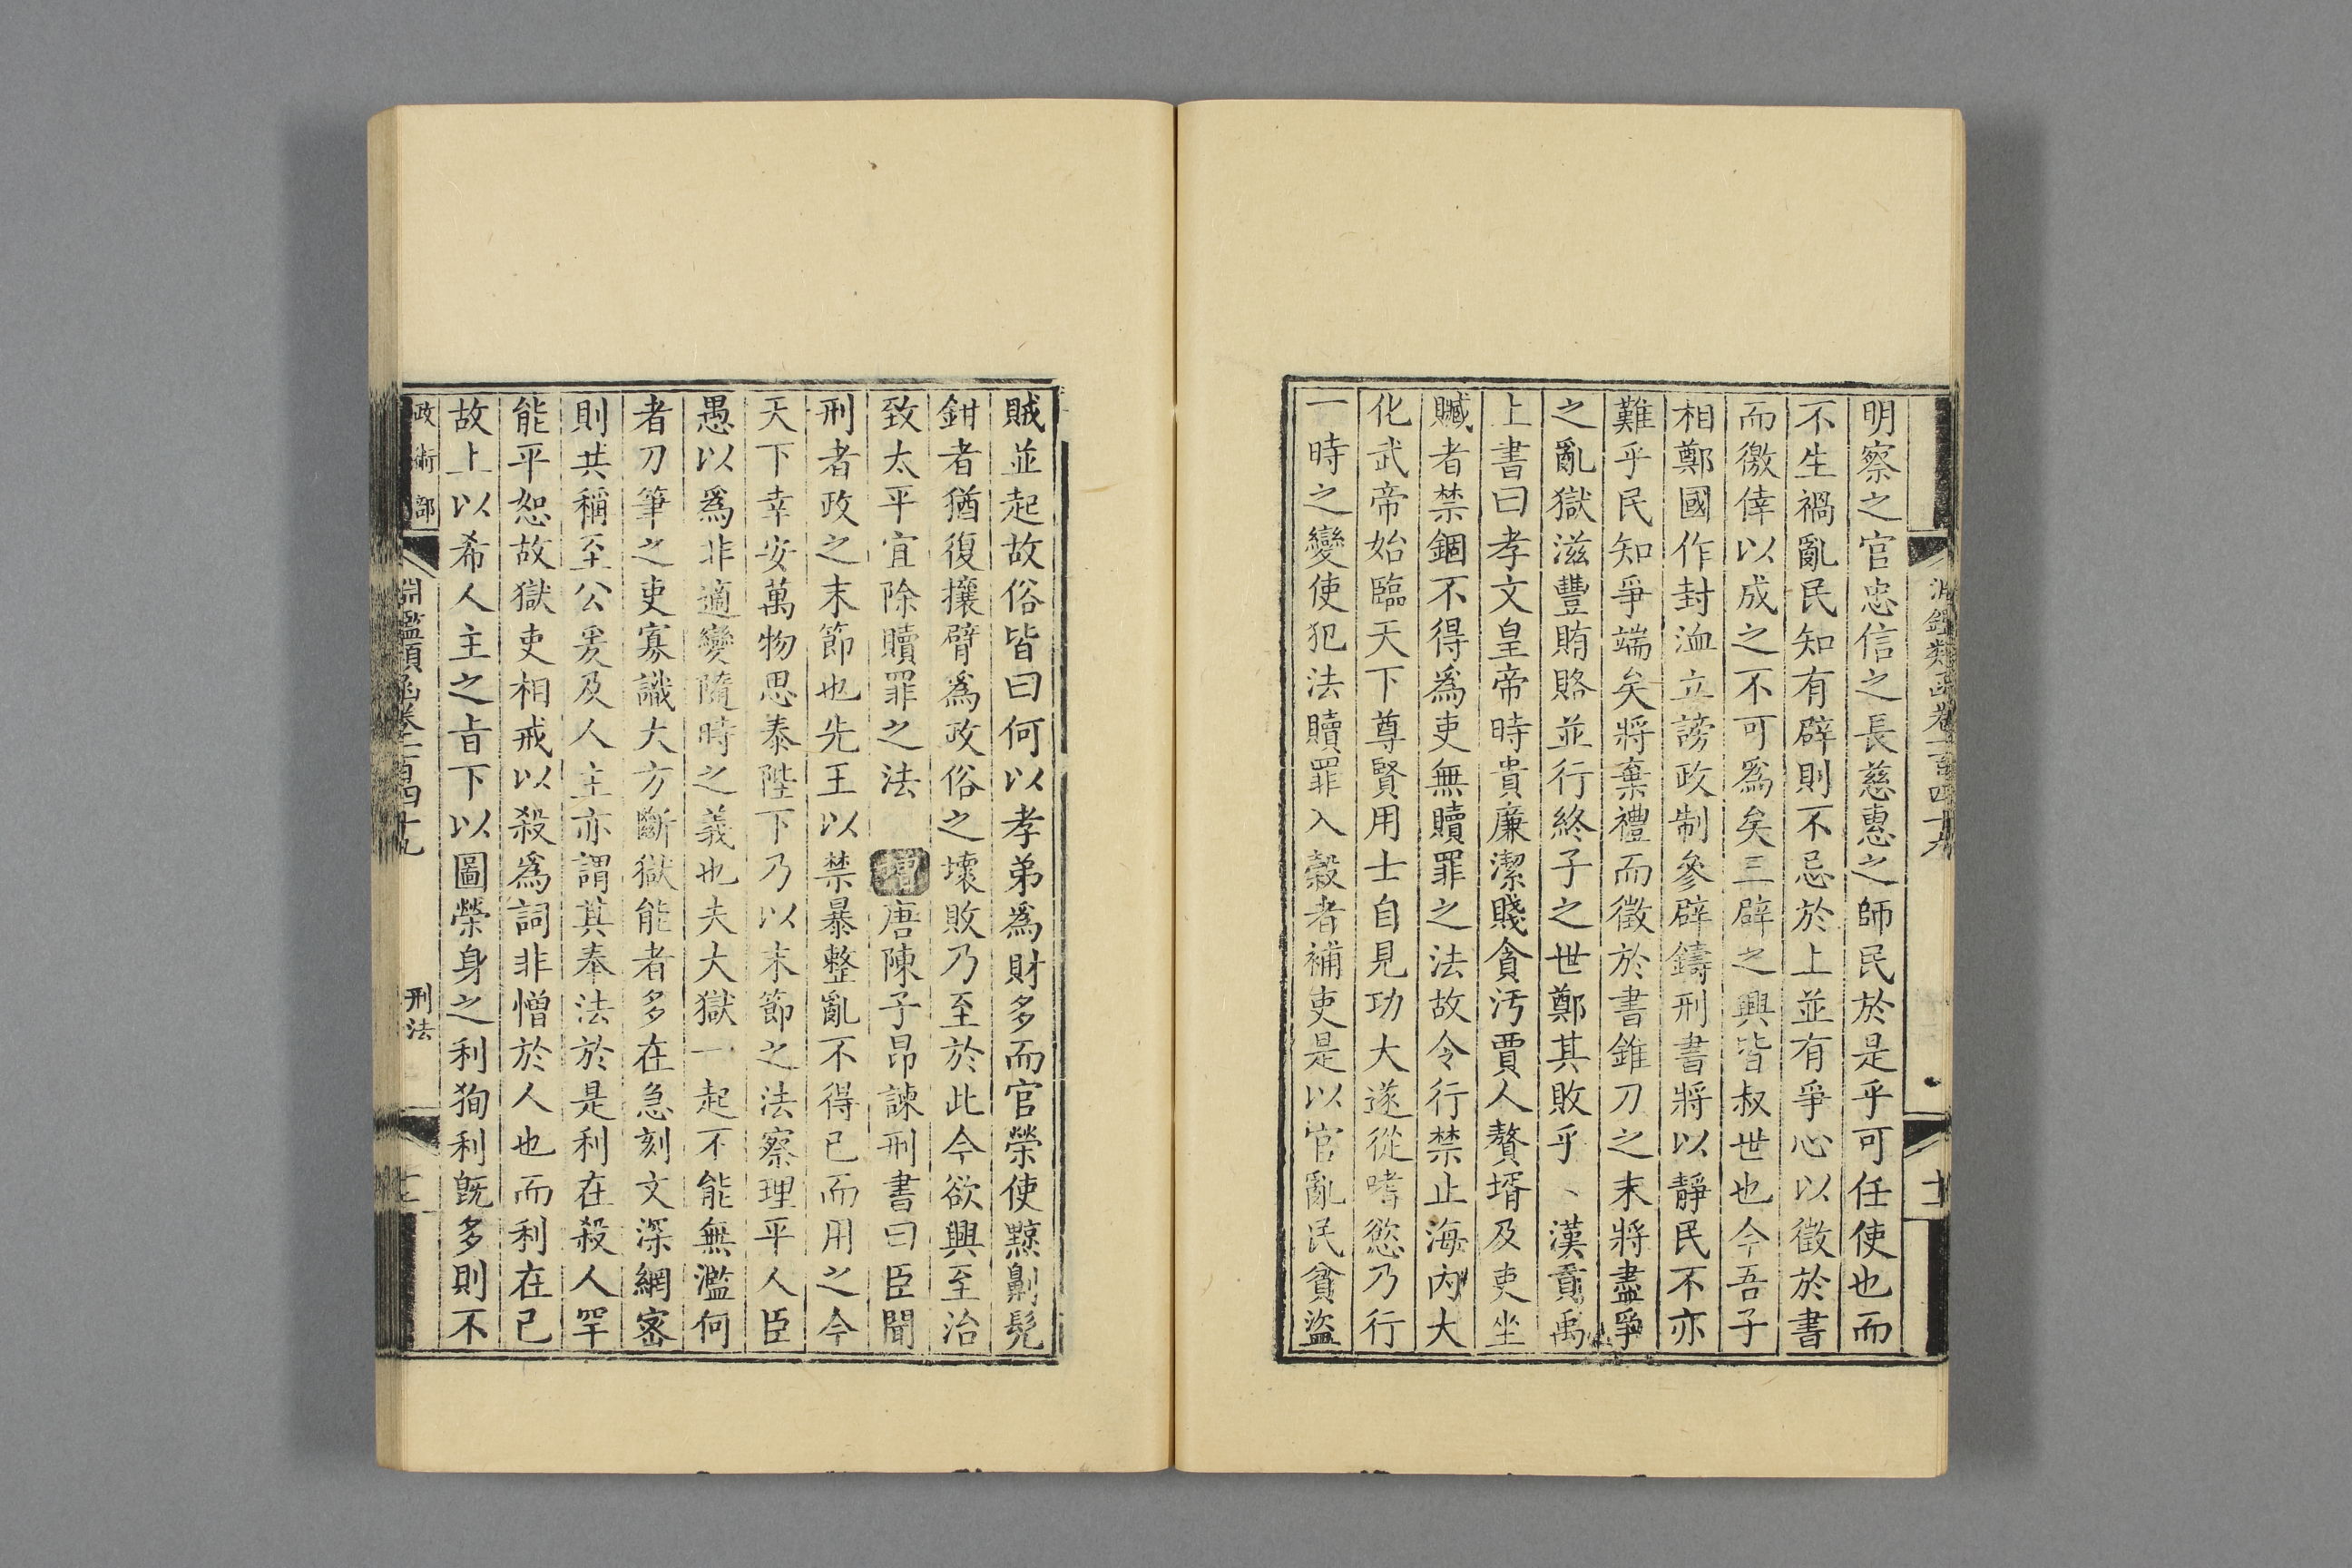 明察之官忠信之長慈惠之師民於是乎可任使也而
不生禍亂民知有辟則不忌於上並有爭心以徵於書
而徼倖以成之不可爲矣三辟之興皆叔世也今吾子
相鄭國作封洫立謗政制參辟鑄刑書將以靜民不亦
難乎民知爭端矣將棄禮而徵於書錐刀之末將盡爭
之亂獄滋豐賄賂並行終子之世鄭其敗乎、漢貢禹
上書曰孝文皇帝時貴廉潔賤貪汚賈人贅壻及吏坐
贓者禁錮不得爲吏無贖罪之法故令行禁止海內大
化武帝始臨天下尊賢用士自見功大遂從嗜慾乃行
一時之變使犯法贖罪入穀者補吏是以官亂民貧盜
賊並起故俗皆曰何以孝弟爲財多而官榮使黥劓髡
鉗者猶復攘臂爲政俗之壞敗乃至於此今欲興至治
致太平宜除贖罪之法 增唐陳子昂諫刑書曰臣聞
刑者政之末節也先王以禁暴整亂不得已而用之今
天下幸安萬物思泰陛下乃以末節之法察理平人臣
愚以爲非適變隨時之義也夫大獄一起不能無濫何
者刀筆之吏寡識大方斷獄能者多在急刻文深網密
則共稱至公爰及人主亦謂其奉法於是利在殺人罕
能平恕故獄吏相戒以殺爲詞非憎於人也而利在已
故上以希人主之旨下以圖榮身之利狥利旣多則不
政術部 淵鑑類函卷一百四十九 刑法